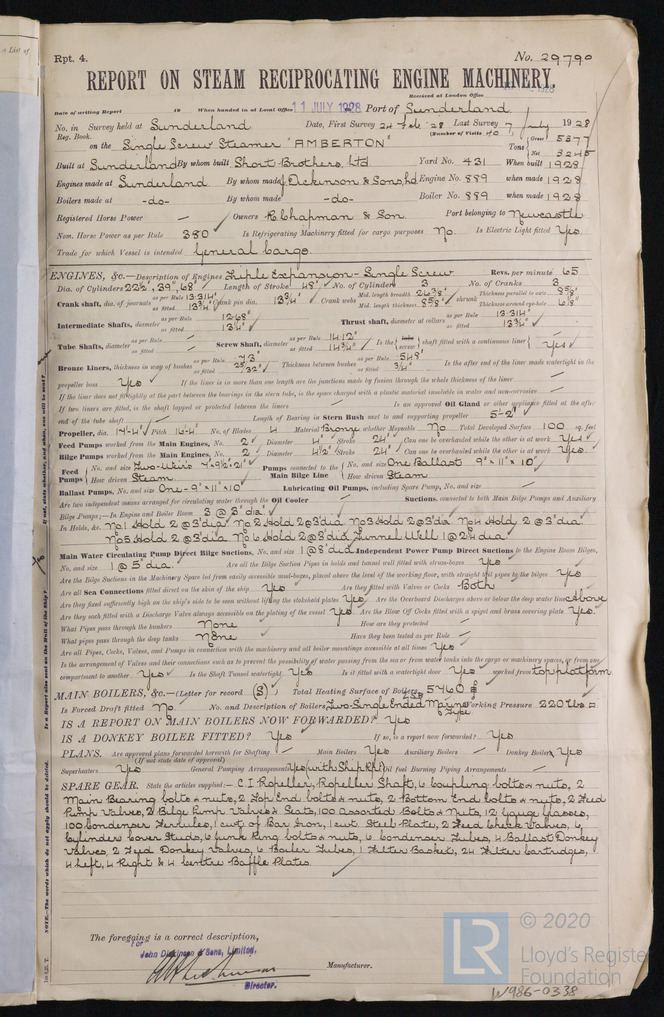 Rpt. 4.
No. 29790
REPORT ON STEAM RECIPROCATING ENGINE MACHINERY.
Received at London Office
Date of writing Report 19 When handed in at Local Office 11 JULY 1928 Port of Sunderland
No. in Survey held at Sunderland Date, First Survey 24 Feb '28 Last Survey 7 July 1928
Reg. Book. (Number of Visits 40)
on the Single Screw Steamer "AMBERTON" Tons Gross 5377 Net 3245
Built at Sunderland By whom built Short Brothers, Ltd Yard No. 431 When built 1928
Engines made at Sunderland By whom made J Dickinson & Sons, Ltd Engine No. 889 when made 1928
Boilers made at -do- By whom made -do- Boiler No. 889 when made 1928
Registered Horse Power Owners R Chapman & Son Port belonging to Newcastle
Nom. Horse Power as per Rule 380 Is Refrigerating Machinery fitted for cargo purposes No. Is Electric Light fitted Yes
Trade for which Vessel is intended General Cargo.
ENGINES, &c.—Description of Engines Triple Expansion - Single Screw Revs. per minute 65
Dia. of Cylinders 22½", 39", 68" Length of Stroke 48" No. of Cylinders 3 No. of Cranks 3
Crank shaft, dia. of journals as per Rule 13.314" as fitted 13¾" Crank pin dia. 13¾" Crank webs Mid. length breadth Mid. length thickness 8⅝" shrunk Thickness parallel to axis 8⅝" Thickness around eye-hole 6⅛"
Intermediate Shafts, diameter as per Rule 12.68" as fitted 13¼" Thrust shaft, diameter at collars as per Rule 13.314" as fitted 13¾"
Tube Shafts, diameter as per Rule as fitted Screw Shaft, diameter as per Rule 14.12" as fitted 14¾" Is the tube screw shaft fitted with a continuous liner Yes
Bronze Liners, thickness in way of bushes as per Rule .73" as fitted 25/32" Thickness between bushes as per Rule .548" as fitted ¾" Is the after end of the liner made watertight in the
propeller boss Yes If the liner is in more than one length are the joints made by fusion through the whole thickness of the liner
If the liner does not fit tightly at the part between the bearings in the stern tube, is the space charged with a plastic material insoluble in water and non-corrosive
If two liners are fitted, is the shaft lapped or protected between the liners Is an approved Oil Gland or other appliance fitted at the after
end of the tube shaft Length of Bearing in Stern Bush next to and supporting propeller 5-2"
Propeller, dia. 17'-4" Pitch 16-4" No. of Blades 4 Material Bronze whether Moveable No Total Developed Surface 100 sq. feet
Feed Pumps worked from the Main Engines, No. 2 Diameter 4" Stroke 24" Can one be overhauled while the other is at work Yes
Bilge Pumps worked from the Main Engines, No. 2 Diameter 4½" Stroke 24" Can one be overhauled while the other is at work Yes.
Feed Pumps No. and size Two-Weirs 7"x9½"x21" Pumps connected to the Main Bilge Line No. and size One Ballast 9"x11"x10"
How driven Steam How driven Steam
Ballast Pumps, No. and size One-9"x11"x10" Lubricating Oil Pumps, including Spare Pump, No. and size
Are two independent means arranged for circulating water through the Oil Cooler Suctions, connected to both Main Bilge Pumps and Auxiliary
Bilge Pumps;—In Engine and Boiler Room 3 @ 3" dia
In Holds, &c. No 1 Hold 2 @ 3" dia No 2 Hold 2 @ 3" dia No 3 Hold 2 @ 3" dia No 4 Hold 2 @ 3" dia
No 5 Hold 2 @ 3" dia No 6 Hold 2 @ 3" dia Tunnel Well 1 @ 2½ dia
Main Water Circulating Pump Direct Bilge Suctions, No. and size 1 @ 8" dia Independent Power Pump Direct Suctions to the Engine Room Bilges,
No. and size 1 @ 5" dia. Are all the Bilge Suction Pipes in holds and tunnel well fitted with strum-boxes Yes
Are the Bilge Suctions in the Machinery Space led from easily accessible mud-boxes, placed above the level of the working floor, with straight tail pipes to the bilges Yes
Are all Sea Connections fitted direct on the skin of the ship Yes Are they fitted with Valves or Cocks Both
Are they fixed sufficiently high on the ship's side to be seen without lifting the stokehold plates Yes Are the Overboard Discharges above or below the deep water line Above
Are they each fitted with a Discharge Valve always accessible on the plating of the vessel Yes Are the Blow Off Cocks fitted with a spigot and brass covering plate Yes.
What Pipes pass through the bunkers None How are they protected
What pipes pass through the deep tanks None Have they been tested as per Rule
Are all Pipes, Cocks, Valves, and Pumps in connection with the machinery and all boiler mountings accessible at all times Yes
Is the arrangement of Valves and their connections such as to prevent the possibility of water passing from the sea or from water tanks into the cargo or machinery spaces, or from one
compartment to another Yes Is the Shaft Tunnel watertight Yes Is it fitted with a watertight door Yes worked from top platform
MAIN BOILERS, &c.—(Letter for record (S)) Total Heating Surface of Boilers 5460
Is Forced Draft fitted No No. and Description of Boilers Two-Single Ended Marine Type Working Pressure 220 lbs
IS A REPORT ON MAIN BOILERS NOW FORWARDED? Yes
IS A DONKEY BOILER FITTED? Yes If so, is a report now forwarded? Yes
PLANS. Are approved plans forwarded herewith for Shafting Main Boilers Yes Auxiliary Boilers Donkey Boilers Yes
(If not state date of approval)
Superheaters Yes General Pumping Arrangements Oil fuel Burning Piping Arrangements
SPARE GEAR. State the articles supplied:— C I Propeller, Propeller Shaft, 6 coupling bolts & nuts, 2
Main Bearing bolts & nuts, 2 Top End bolts & nuts, 2 Bottom End bolts & nuts, 2 Feed
Pump Valves, 2 Bilge Pump Valves & Seats, 100 Assorted Bolts & Nuts, 12 Gauge Glasses,
100 Condenser Ferrules, 1 cwt of Bar Iron, 1 cwt. Steel Plate, 2 Feed Check Valves, 6
Cylinder Cover Studs, 6 Junk Ring bolts & nuts, 6 Condenser Tubes, 4 Ballast Donkey
Valves, 2 Feed Donkey Valves, 6 Boiler Tubes, 1 Filter Basket, 24 Filter Cartridges,
4 Left, 4 Right & 4 Centre Baffle Plates.
The foregoing is a correct description,
For John Dickinson & Sons, Limited.
Manufacturer.
Director.
NOTE.—The words which do not apply should be deleted.
© 2020
LR
Lloyd's Register
Foundation
W986-0338